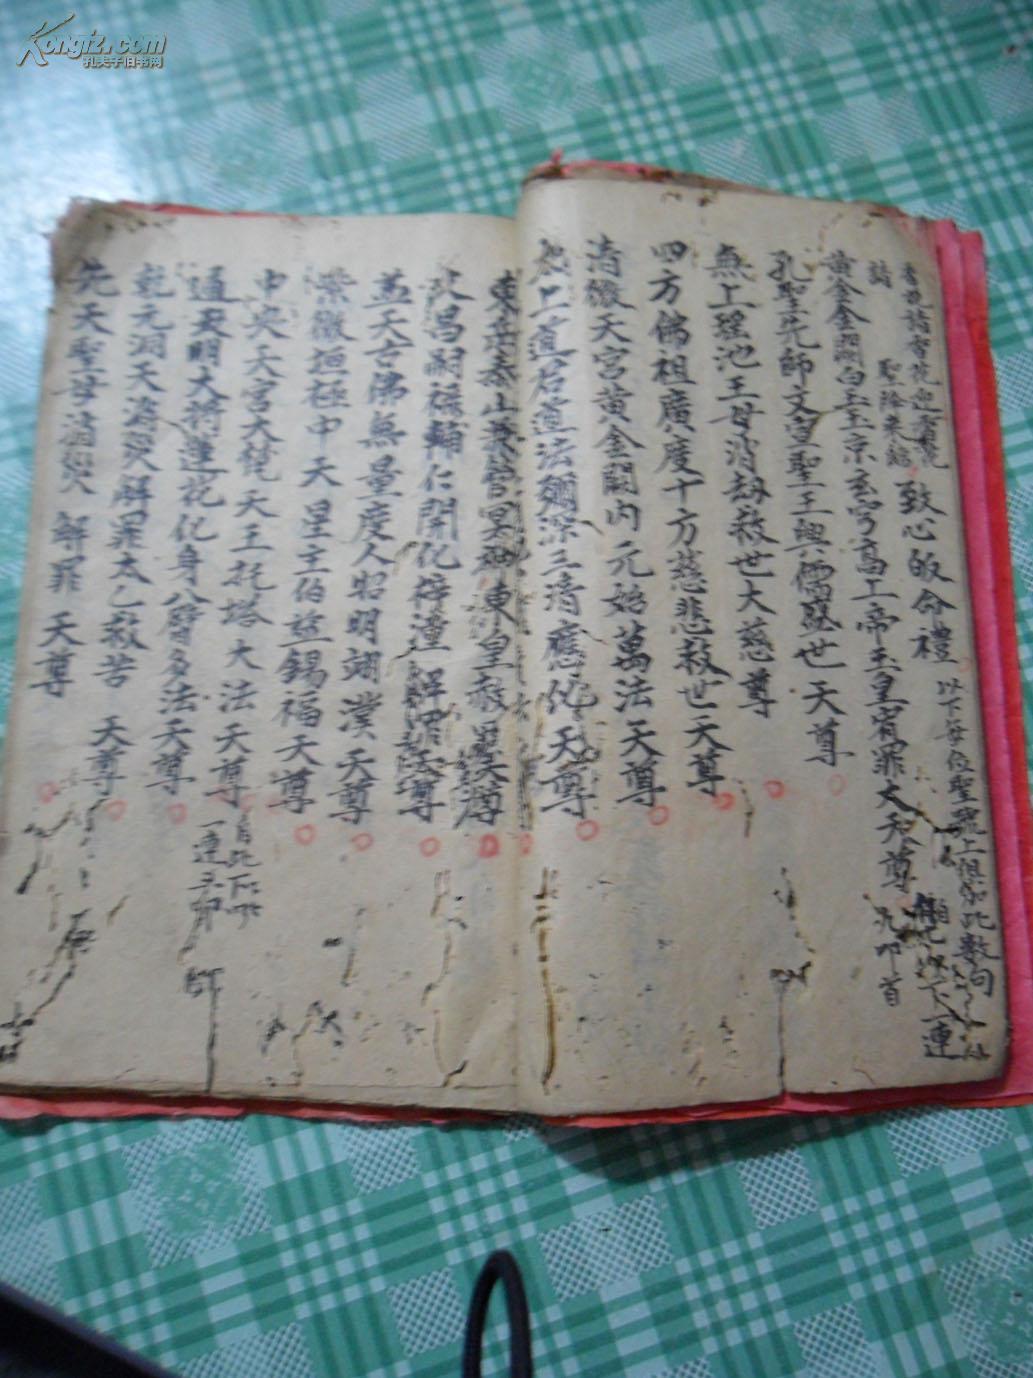 Kongfz.com
孔夫子旧书网
請 聖降來臨 致心皈命禮 以下每位聖號上俱加此數句
黃金金闕白玉玉京玄穹高工帝玉皇宥罪大天尊 九叩首
孔聖先師文宣聖王興儒盛世天尊
無上瑶池王母消劫救世大慈尊
四方佛祖廣度十方慈悲救世天尊
清微天宮黃金闕内元始萬法天尊
上道君道法彌深三清應化天尊
東嶽泰山兼管冥
文昌嗣祿輔仁開化梓潼
蓋天古佛無量度人昭明翊漢天尊
紫微垣極中天星主伯益錫福天尊
中央天宮大統天王托塔大法天尊
通天明大將蓮花化身八臂多法天尊
乾元洞天消災解罪太乙救苦 天尊
先天聖母消災 解罪 天尊